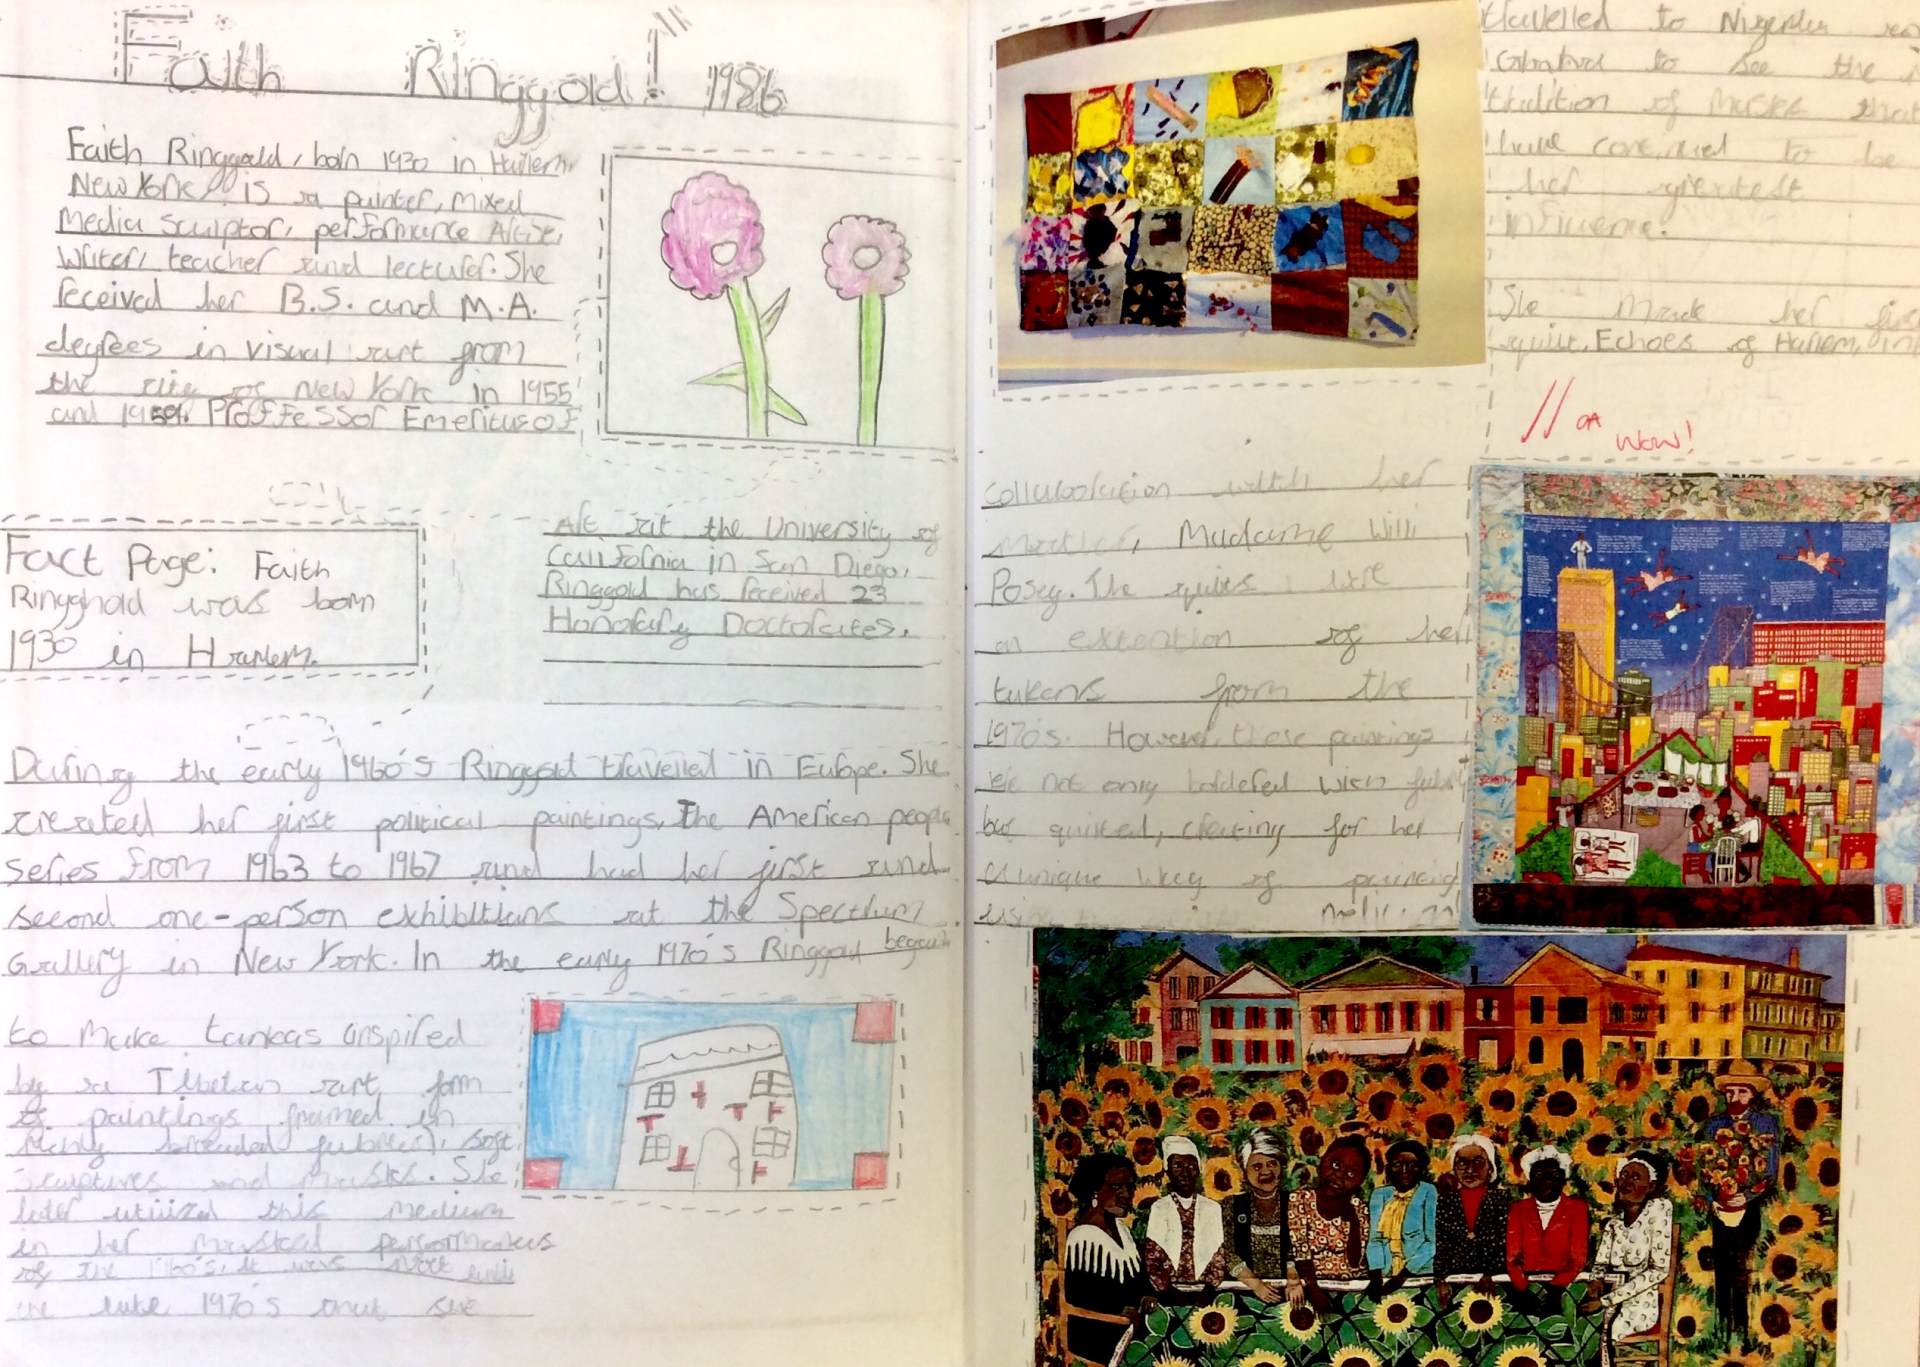 Faith Ringgold! 1986
Faith Ringgold, born 1930 in Harlem,
New York is a painter, mixed
Media sculptor, performance Artist,
Writer, teacher and lecturer. She
received her B.S. and M.A.
degrees in visual art from
the city of New York in 1955
and 1959. Proffessor Emeritus of
Art at the University of
California in San Diego,
Ringgold has received 23
Honorary Doctorates.
Fact Page: Faith
Ringghold was born
1930 in Harlem.
During the early 1960's Ringgold travelled in Europe. She
created her first political paintings, The American people
series from 1963 to 1967 and had her first and
second one-person exhibitions at the Spectrum
Gallery in New York. In the early 1970's Ringgold began
to make tankas inspired
by a Tibetan art form
of paintings framed in
richly brocaded fabrics, soft
sculptures and masks. She
later utilized this medium
in her masked performances
of the
the late 1970's that she
travelled to Nigeria and
to see the
tradition of masks that
have continued to be
her greatest
influence.
She made her first
quilt, Echoes of Harlem, in
// OA
Wow!
collaboration with her
mother, Madame Willi
Posey. The quilts were
an extention of her
tankas from the
1970's. However, these paintings
were not only bordered with fabric
but quilted, creating for her
a unique way of painting
using the